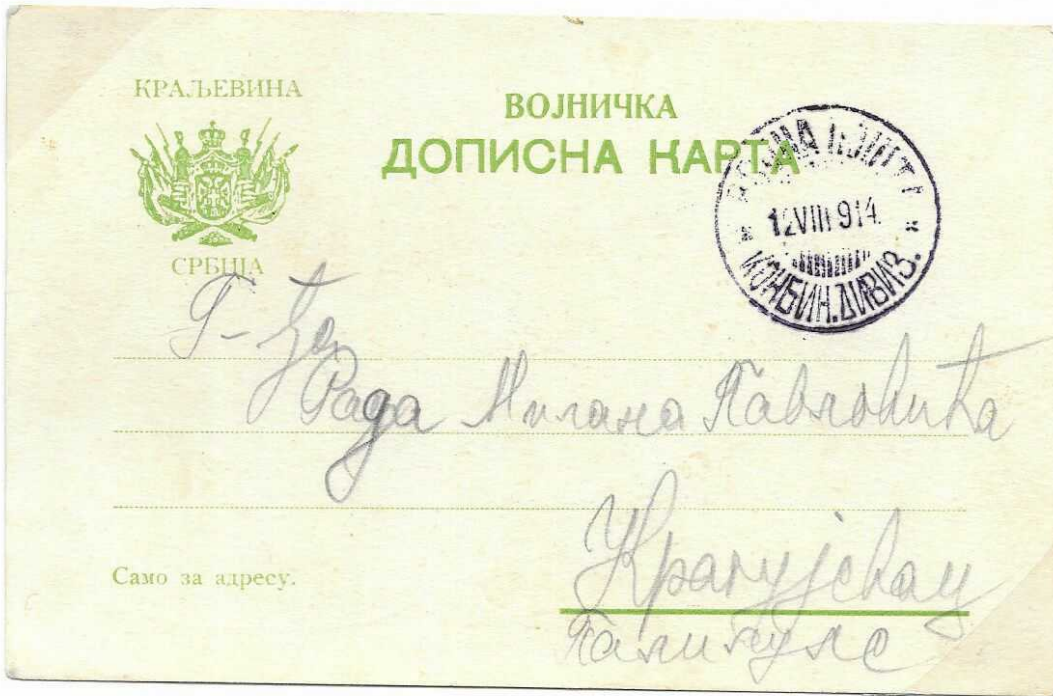 КРАЉЕВИНА
СРБИЈА
ВОЈНИЧКА
ДОПИСНА КАРТА
ВОЈНА ПОШТА
12 VIII 914
КОНБИН. ДИВИЗ.
Г-ђа
Рада Милана Павловића
Крагујевац
Палилуле
Само за адресу.